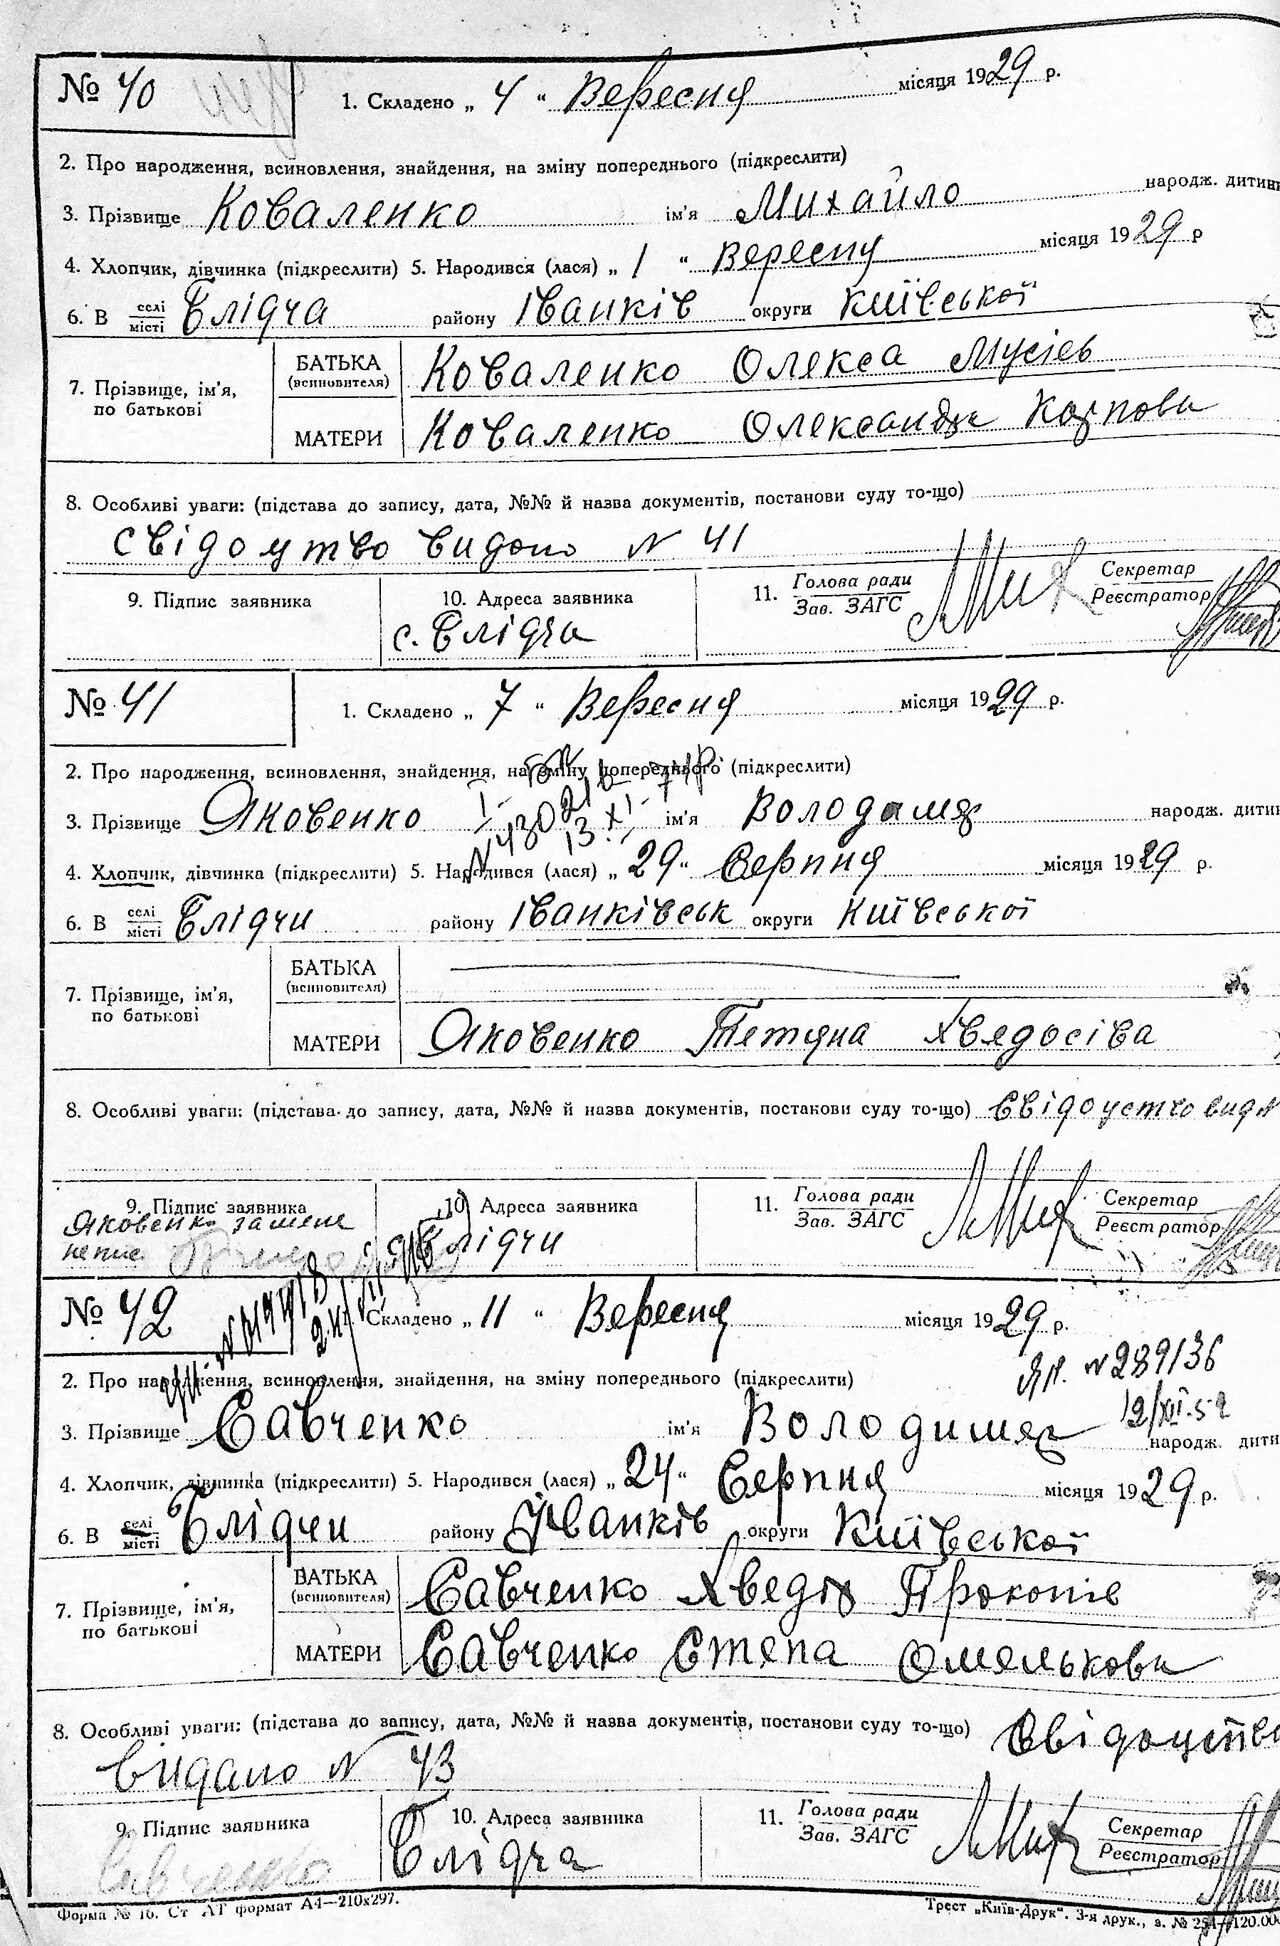 № 40 1. Складено „ 4 “ Вересня місяця 1929 р.
2. Про народження, всиновлення, знайдення, на зміну попереднього (підкреслити)
3. Прізвище Коваленко ім'я Михайло народж. дитини
4. Хлопчик, дівчинка (підкреслити) 5. Народився (лася) „ 1 “ Вересня місяця 1929 р
6. В селі місті Блідча району Іванків округи Київської
7. Прізвище, ім'я, по батькові
БАТЬКА (всиновителя) Коваленко Олекса Мусієв
МАТЕРИ Коваленко Олександра Карпова
8. Особливі уваги: (підстава до запису, дата, №№ й назва документів, постанови суду то-що)
свідоцтво видано N 41
9. Підпис заявника 10. Адреса заявника 11. Голова ради Зав. ЗАГС Секретар Реєстратор
с. Блідча
№ 41 1. Складено „ 7 “ Вересня місяця 1929 р.
2. Про народження, всиновлення, знайдення, на зміну попереднього (підкреслити)
3. Прізвище Яковенко ім'я Володимр народж. дитини
4. Хлопчик, дівчинка (підкреслити) 5. Народився (лася) „ 29 “ Серпня місяця 1929 р.
6. В селі місті Блідчи району Іванківськ округи Київської
7. Прізвище, ім'я, по батькові
БАТЬКА (всиновителя)
МАТЕРИ Яковенко Тетяна Хведосіва
8. Особливі уваги: (підстава до запису, дата, №№ й назва документів, постакови суду то-що) Свідоцтво вид N
9. Підпис заявника 10. Адреса заявника 11. Голова ради Зав. ЗАГС Секретар Реєстратор
Яковенко Блідчи
№ 42 Складено „ 11 “ Вересня місяця 1929 р.
N 289136
2. Про народження, всиновлення, знайдення, на зміну попереднього (підкреслити)
12/XII-52
3. Прізвище Савченко ім'я Володимер народж. дити
4. Хлопчик, дівчинка (підкреслити) 5. Народився (лася) „ 24 “ Серпня місяця 1929 р.
6. В селі місті Блідчи району Іванків округи Київської
7. Прізвище, ім'я, по батькові
БАТЬКА (всиновителя) Савченко Хведір Прокопів
МАТЕРИ Савченко Степа Омелькова
8. Особливі уваги: (підстава до запису, дата, №№ й назва документів, постанови суду то-що) Свідоцтво
видано N 43
9. Підпис заявника 10. Адреса заявника 11. Голова ради Зав. ЗАГС Секретар Реєстратор
Савченко Блідча
Форма № 16. Ст АТ формат А4—210х297. Трест „Київ-Друк“. 3-я друк., з. № 254—120.00